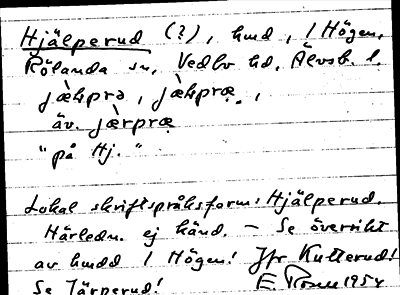 Hjälperud (?), hmd, i Högen,
Rölanda sn, Vedbo hd, Älvsb. l.
jæ̀ḷprə, jæ̀ḷpræ,
äv. jæ̀rpræ
"på Hj."
Lokal skriftspråksform: Hjälperud.
Härledn. ej känd. – Se översikt
av hmdd i Högen! Jfr Kulterud!
Se Järperud! E. Rosell 1954